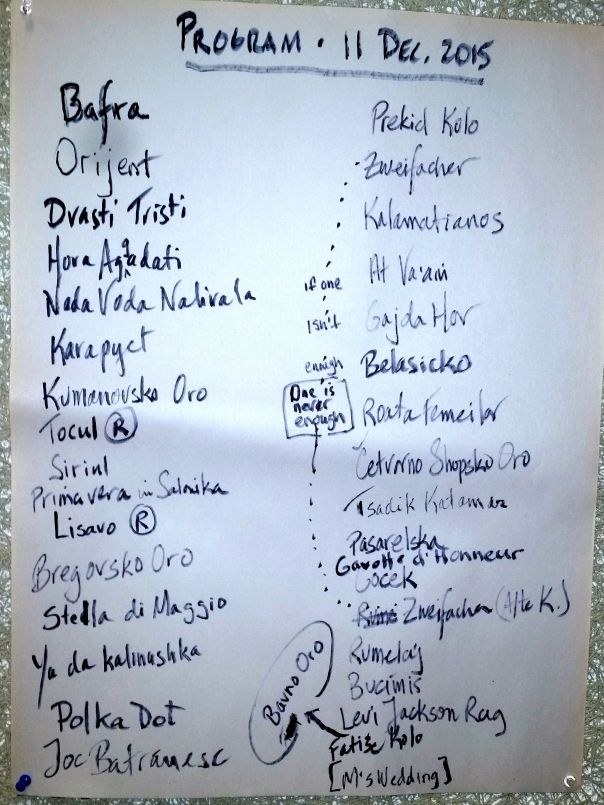 PROGRAM · 11 DEC. 2015
Bafra
Orijent
Drasti Tristi
Hora Agadati
Nada Voda Nalivala
Karapyet
Kumanovsko Oro
Tocul ®
Siriul
Primavera in Salonika
Lisavo ®
Bregovsko Oro
Stella di Maggio
Ya da kalinushka
Polka Dot
Joc Batranesc
Prekid Kolo
Zweifacher
Kalamatianos
At Va'ani
Gajda Hor
Belasicko
Roata Femeilor
Cetvorno Shopsko Oro
Tsadik Katamar
Pasarelska
Gavotte d'Honneur
Cocek
Zweifacher (Alte K.)
Rumelaj
Bucimis
Levi Jackson Rag
Fatise Kolo
[M's Wedding]
if one
isn't
enough
One is
never
enough
Bavno Oro